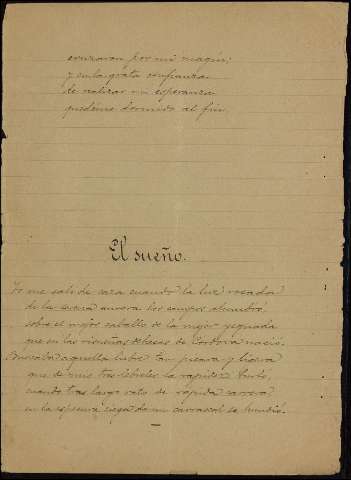 cruzaron por mi magin;
y en la grata confianza
de realizar mi esperanza
quedéme dormido al fin.
El sueño.
Yo me salí de caza cuando la luz rosada
de la nueva aurora los campos alumbró
sobre el mejor caballo de la mejor yeguada
que en las risueñas dehesas de Cordova nació.
Buscaba aquella liebre tan pícara y ligera
que de mis tres lebreles la rapidez burló
cuando tras largo rato de rapida carrera
en la espesura ciega de un carrascal se hundió.